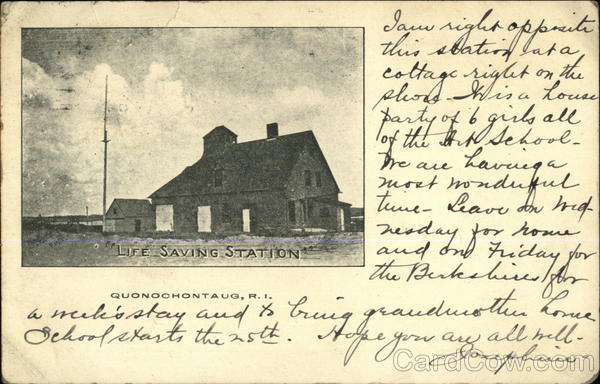 I am right opposite
this station at a
cottage right on the
shore - It is a house
party of 6 girls all
of the Art School -
We are having a
most wonderful
time - Leave on Wed-
nesday for home
and on Friday for
the Berkshires for
"LIFE SAVING STATION"
QUONOCHONTAUG, R.I.
a week's stay and to bring grandmother home
School starts the 25th. Hope you are all well -
Josephine
CardCow.com